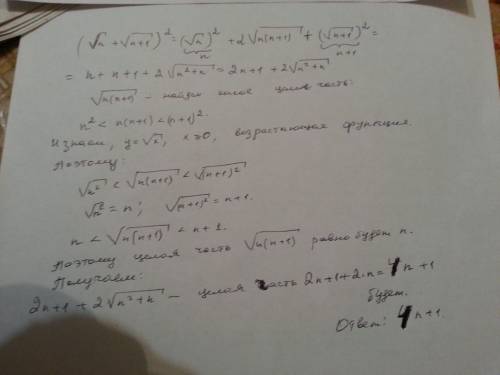 (√n + √(n+1))² = (√n)² + 2√(n(n+1)) + (√(n+1))² =
n n+1
= n + n + 1 + 2√(n²+n) = 2n + 1 + 2√(n²+n)
√(n(n+1)) – найдем целую часть:
n² < n(n+1) < (n+1)².
И знаем, y = √x, x ≥ 0, возрастающая функция.
Поэтому:
√n² < √(n(n+1)) < √(n+1)²
√n² = n; √(n+1)² = n+1.
n < √(n(n+1)) < n+1.
Поэтому целая часть √(n(n+1)) равно будет n.
Получаем:
2n+1 + 2√(n²+n) – целая часть 2n+1+2·n = 4n+1
будет.
Ответ: 4n+1.